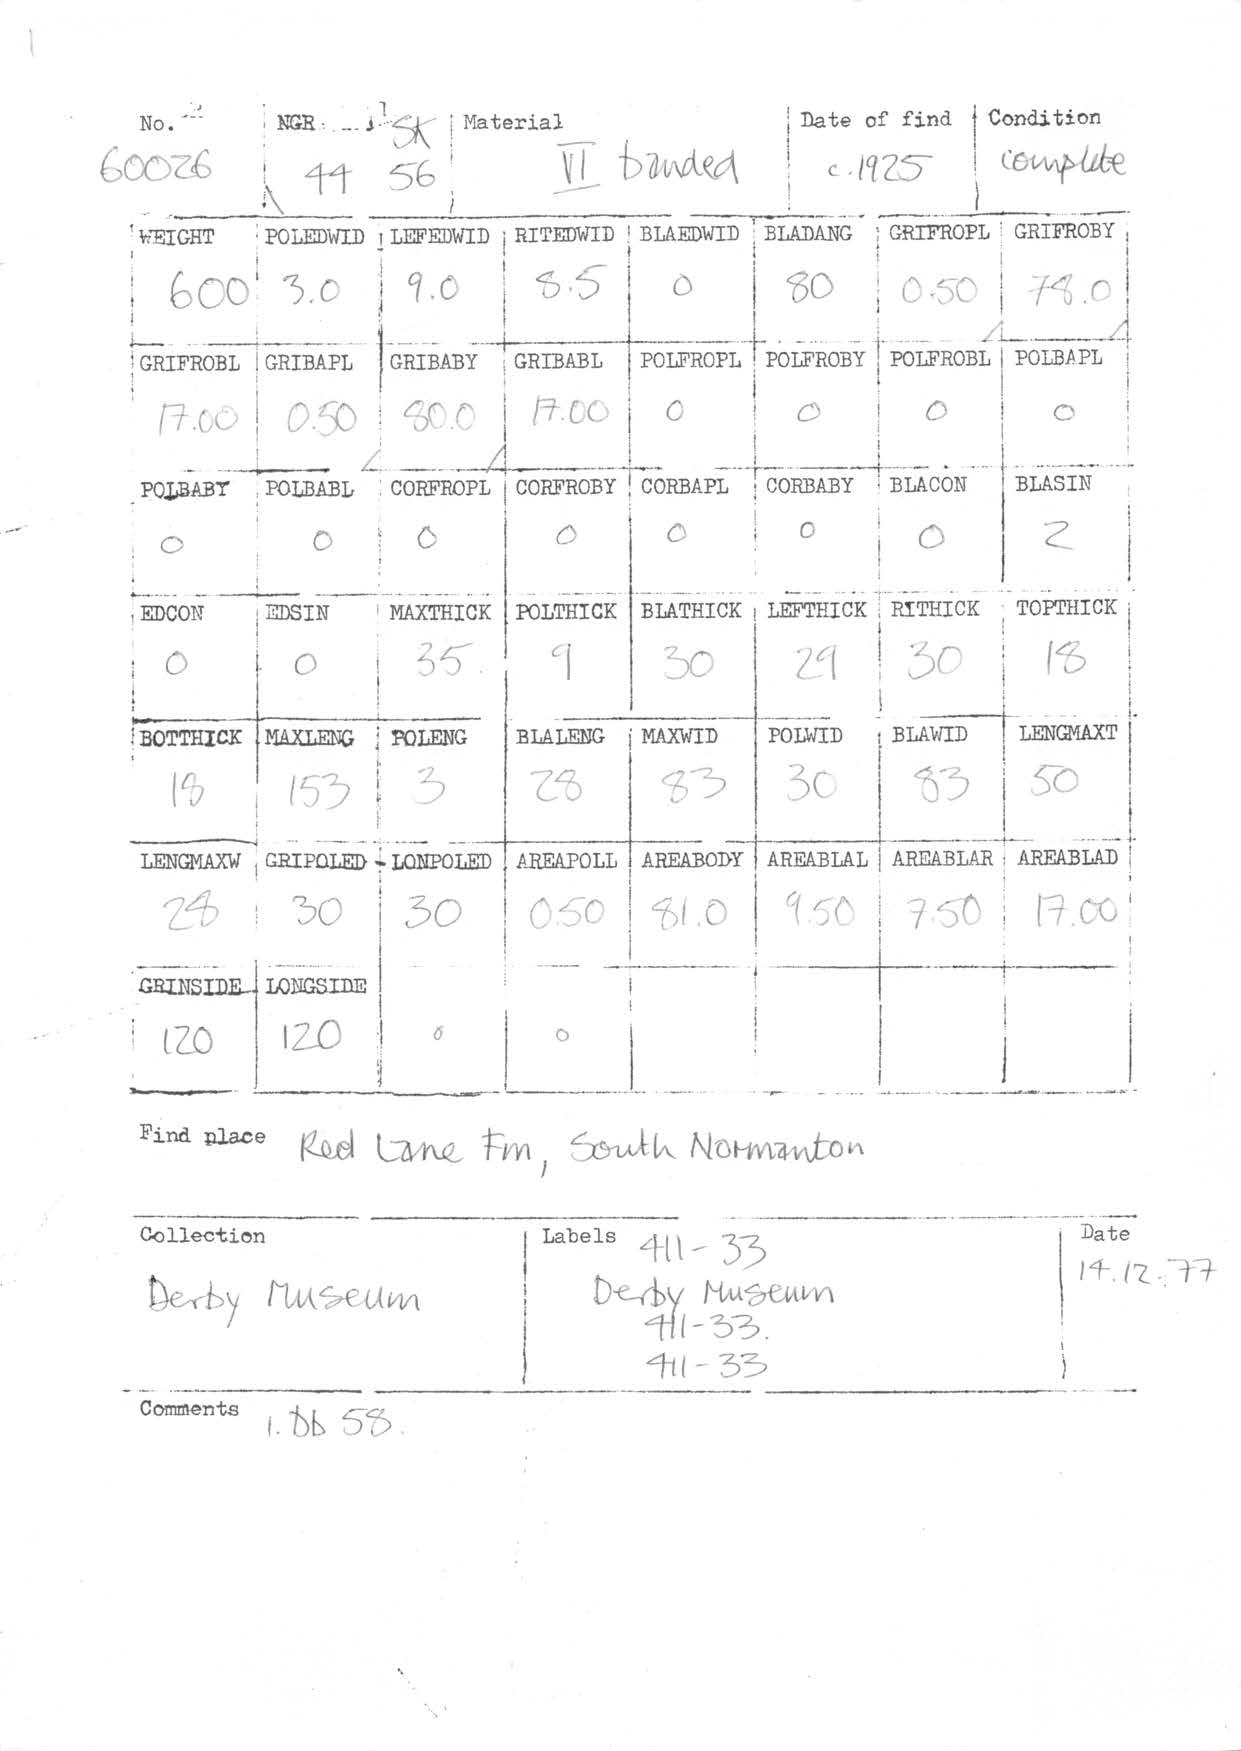 No. NGR SK Material Date of find Condition
60026 44 56 VI banded c.1925 complete
WEIGHT POLEDWID LEFEDWID RITEDWID BLAEDWID BLADANG GRIFROPL GRIFROBY
600 3.0 9.0 8.5 0 80 0.50 78.0
GRIFROBL GRIBAPL GRIBABY GRIBABL POLFROPL POLFROBY POLFROBL POLBAPL
17.00 0.50 80.0 17.00 0 0 0 0
POLBABY POLBABL CORFROPL CORFROBY CORBAPL CORBABY BLACON BLASIN
0 0 0 0 0 0 0 2
EDCON EDSIN MAXTHICK POLTHICK BLATHICK LEFTHICK RITHICK TOPTHICK
0 0 35 9 30 29 30 18
BOTTHICK MAXLENG POLENG BLALENG MAXWID POLWID BLAWID LENGMAXT
18 153 3 28 83 30 83 50
LENGMAXW GRIPOLED LONPOLED AREAPOLL AREABODY AREABLAL AREABLAR AREABLAD
28 30 30 0.50 81.0 9.50 7.50 17.00
GRINSIDE LONGSIDE
120 120 0 0
Find place Red Lane Fm, South Normanton
Collection Labels 411-33 Date
Derby Museum Derby Museum 14.12.77
411-33.
411-33
Comments 1. Db 58.